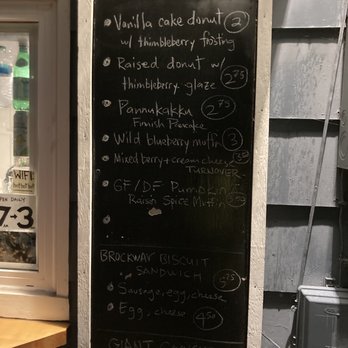 Vanilla cake donut 2
w/ thimbleberry frosting
Raised donut w/
thimbleberry glaze 2.75
Pannukakku 2.75
Finnish Pancake
Wild blueberry muffin 3
Mixed berry + cream cheese
TURNOVER
GF/DF Pumpkin
Raisin Spice Muffin
BROCKWAY BISCUIT
SANDWICH
Sausage, egg, cheese 5.75
Egg, cheese 4.50
GIANT
WIFI
OPEN DAILY
7-3